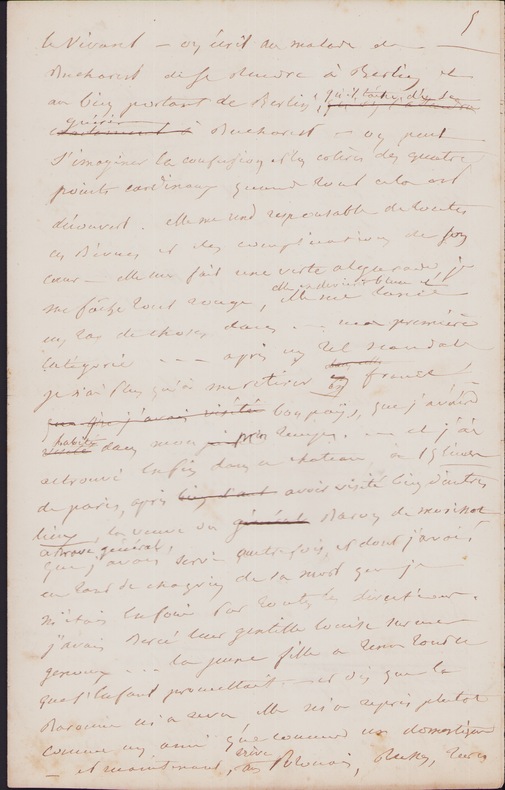 5
le Vivarel — on écrit au malade de
Bucharest de se rendre à Berlin et
au bien portant de Berlin, qu'il tâche d'en se
guérir
à Bucharest — on peut
s'imaginer la confusion et les colères des quatre
points cardinaux quand tout cela est
découvert. elle me rend responsable de toutes
ces bévues et des complications de son
cœur — elle me fait une verte algarade, je
me fâche tout rouge, elle devient bleue et elle me lance
un tas de choses dans — ma première
catégorie --- après un tel scandale
je n'ai plus qu'à me retirer en france !
que j'avais visité bon pays, que j'avais
habité dans mon jeune temps. --- et j'ai
retrouvé enfin dans un chateau à 15 lieues
de paris, après avoir visité bien d'autres
lieux, la veuve du général Baron de
a brave général,
que j'avais servi quatre fois, et dont j'avais
eu tant de chagrin de la mort que je
m'étais enfoui par toutes les directions.
j'avais bercé leur gentille louise sur mes
genoux --- la jeune fille a tenu tout ce
que l'enfant promettait — et dès que la
Baronne m'a revu elle m'a repris plutot
comme un ami que comme un domestique
— et maintenant, Polonais, Russes, Turcs